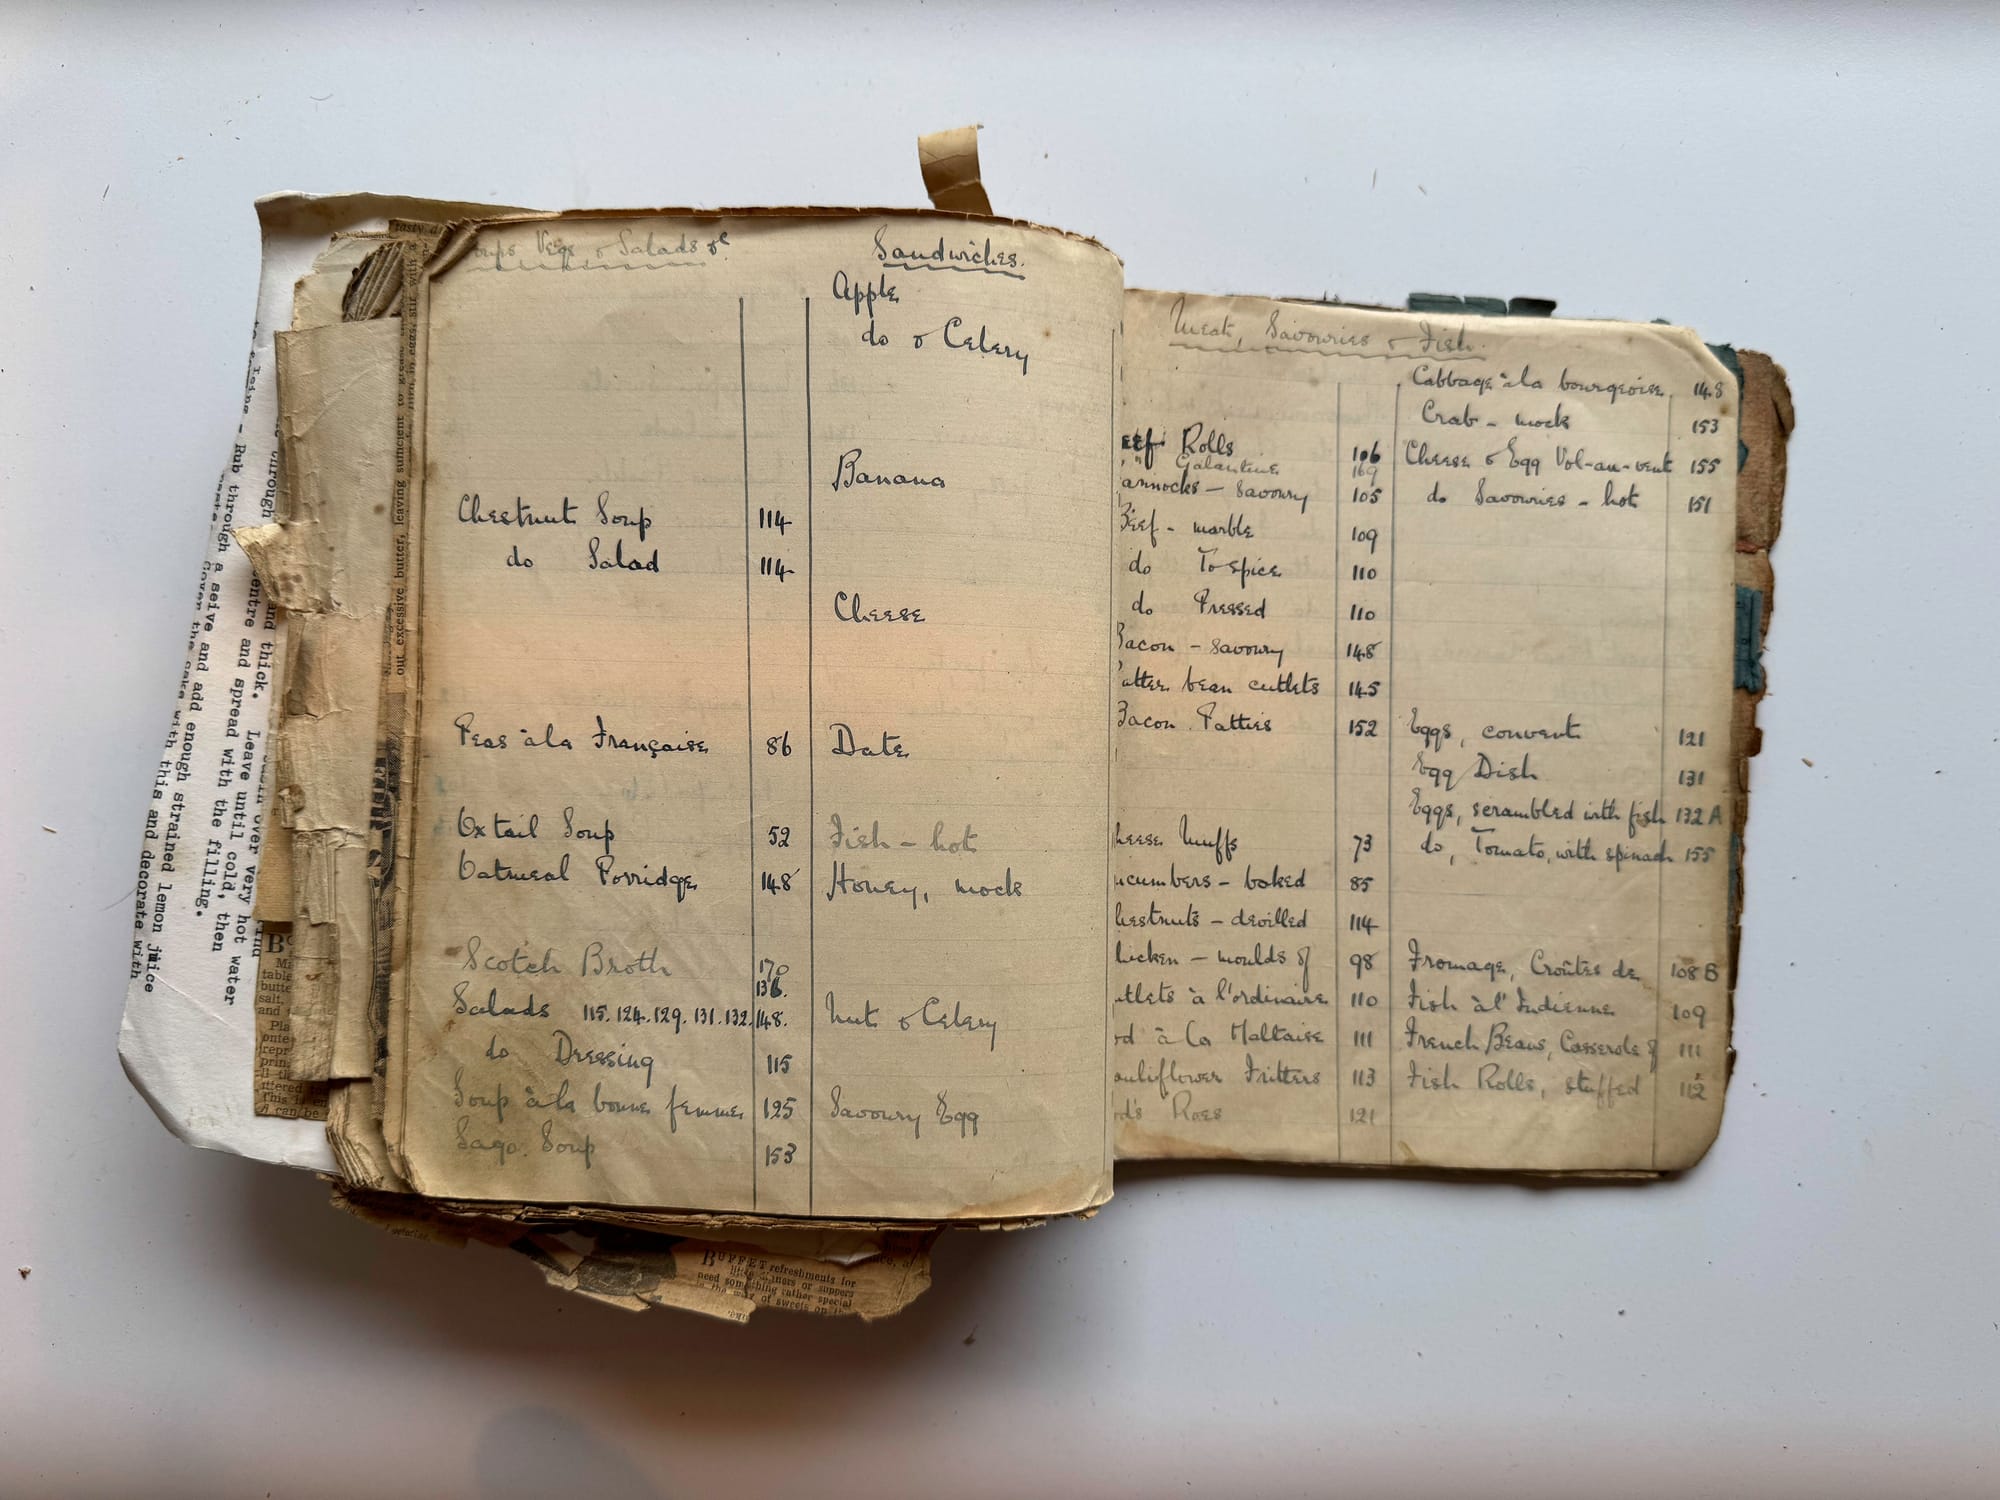 Soups Vegs & Salads &c
Chestnut Soup 114
do Salad 114
Peas à la Française 86
Oxtail Soup 52
Oatmeal Porridge 148
Scotch Broth 170
136.
Salads 115. 124. 129. 131. 132. 148.
do Dressing 115
Soup à la bonne femme 125
Sago Soup 153
Sandwiches.
Apple
do & Celery
Banana
Cheese
Date
Fish - hot
Honey, mock
Nut & Celery
Savoury Egg
Meat, Savouries & Fish.
eef Rolls 106
" " Galantine 169
annocks - Savoury 105
Beef - marble 109
do To spice 110
do Pressed 110
Bacon - savoury 148
atter bean cutlets 145
Bacon Patties 152
heese Muffs 73
ucumbers - baked 85
hestnuts - devilled 114
hicken - moulds of 98
utlets à l'ordinaire 110
od à la Maltaise 111
auliflower Fritters 113
od's Roes 121
Cabbage à la bourgeoise 148
Crab - mock 153
Cheese & Egg Vol-au-vent 155
do Savouries - hot 151
Eggs, convent 121
Egg Dish 131
Eggs, scrambled with fish 132 A
do, Tomato, with spinach 155
Fromage, Croûtes de 108 B
Fish à l'Indienne 109
French Beans, Casserole of 111
Fish Rolls, stuffed 112
tasty d
out excessive butter, leaving sufficient to grease
and thick. Leave until cold, then
entre and spread with the filling.
- Rub through a seive and add enough strained lemon juice
Cover the cake with this and decorate with
over very hot water
BUFFET refreshments for
little dinners or suppers
need something rather special
in the way of sweets on the